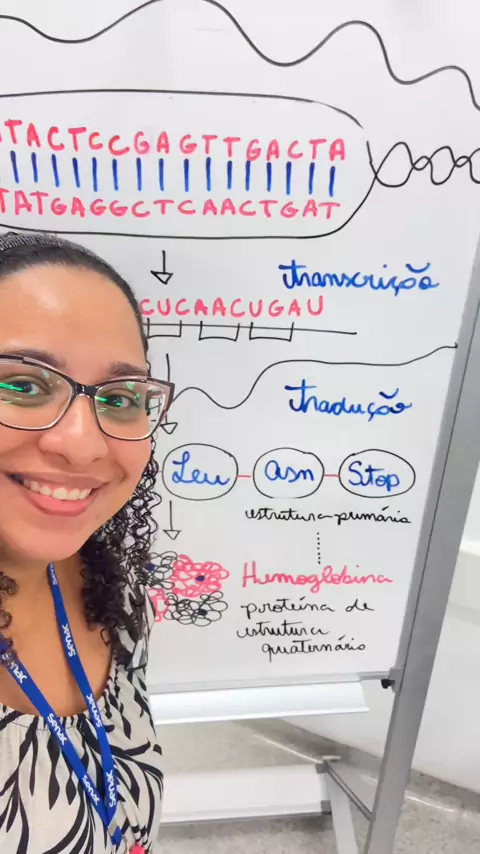 TACTCCGAGTTGACTA
TATGAGGCTCAACTGAT
transcrição
CUCAACUGAU
tradução
Leu asn Stop
estrutura primária
Hemoglobina
proteína de
estrutura
quaternário
senac
senac